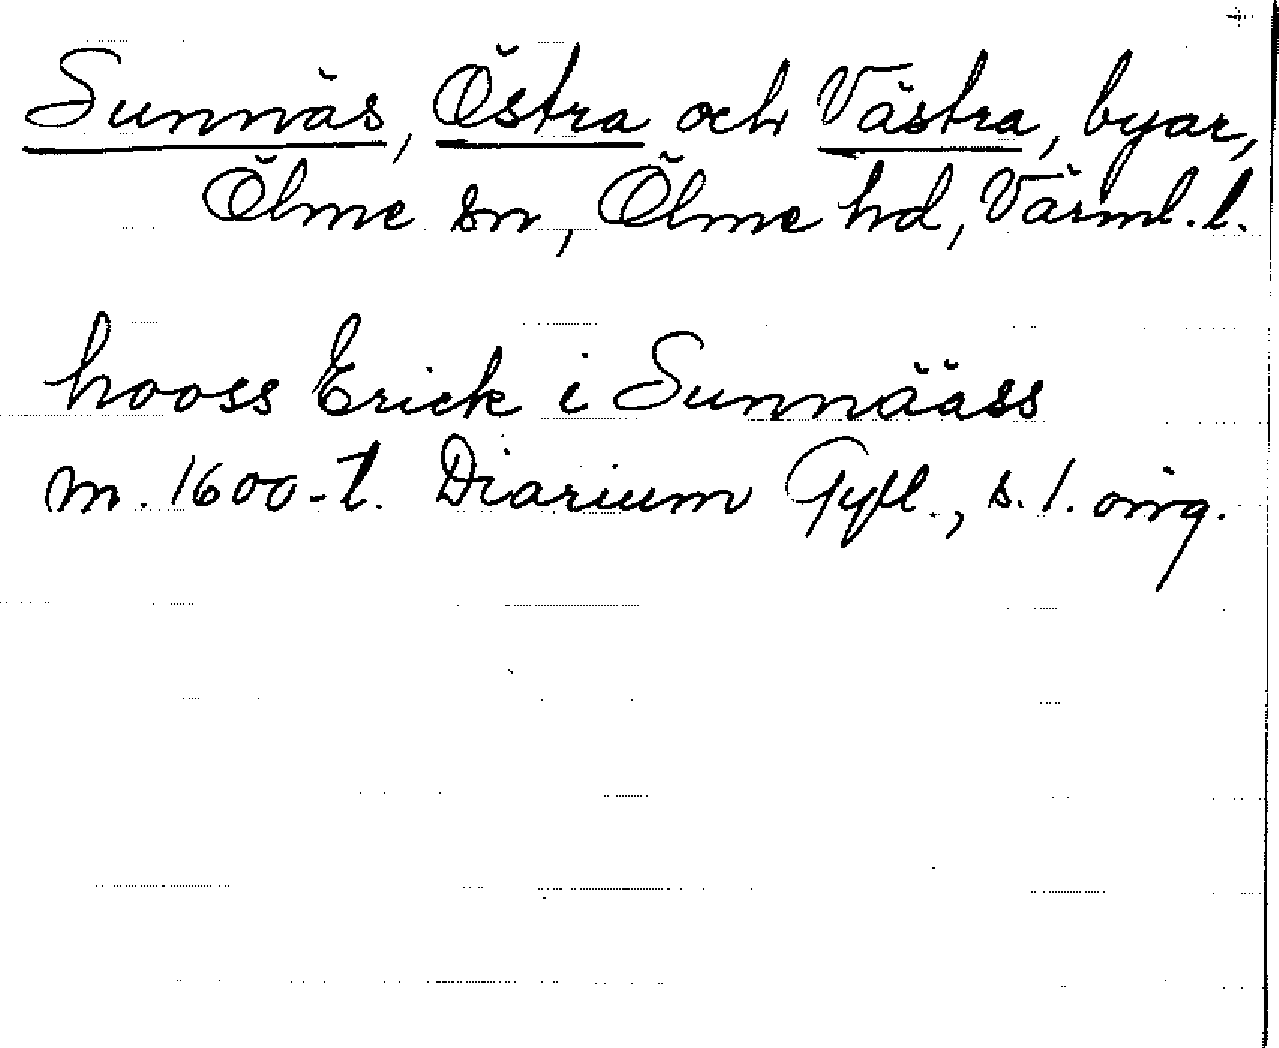 Sunnäs, Östra och Västra, byar,
Ölme sn, Ölme hd, Värml. l.
hooss Erick i Sunnääss
m. 1600-t. Diarium Gyll., s. 1. omg.